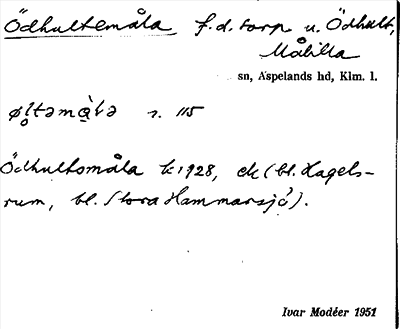 Ödhultemåla, f.d. torp u. Ödhult,
Målilla
sn, Aspelands hd, Klm. l.
s. 115
Ödhultsmåla k 1928, ek (bl. Hagels-
rum, bl. Stora Hammarsjö).
Ivar Modéer 1951